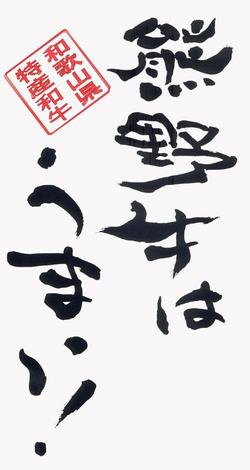 熊野牛は
うまい!
和歌山県
特産和牛